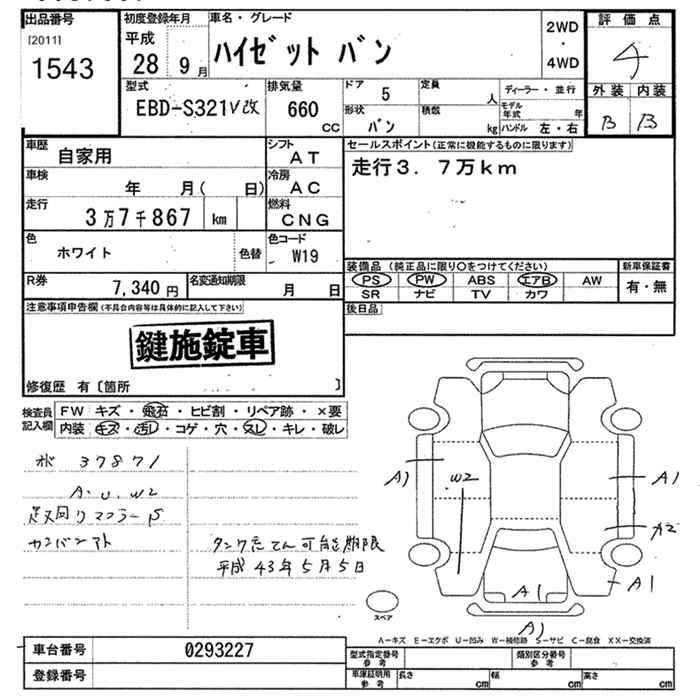 出品番号
[2011]
1543
初度登録年月
平成
28 9月
車名・グレード
ハイゼット バン
2WD
・
4WD
評価点
4
外装 内装
B B
型式
EBD-S321V改
排気量
660
CC
ドア 5
形状 バン
定員 人
積数 kg
ディーラー・並行
モデル年式 年
ハンドル 左・右
車歴
自家用
シフト
AT
車検
年 月( 日)
冷房
AC
走行
3万7千867 km
燃料
CNG
色
ホワイト
色替
色コード
W19
R券
7,340 円
名変通知期限
月 日
セールスポイント(正常に機能するものに限ります)
走行3.7万km
装備品 (純正品に限り○をつけてください)
PS PW ABS エアB AW
SR ナビ TV カワ
新車保証書
有・無
後日品
注意事項申告欄(不具合内容等は具体的に記入して下さい)
鍵施錠車
修復歴 有〔箇所 〕
検査員
記入欄
FW キズ・飛石・ヒビ割・リペア跡・×要
内装 キズ・汚レ・コゲ・穴・スレ・キレ・破レ
37871
A.U.W2
足回りマフラーS
カンバンアト
タンク充てん可能期限
平成43年5月5日
A1
W2
A1
A2
A1
A1
A1
スペア
A-キズ E-エクボ U-凹み W-補修跡 S-サビ C-腐食 XX-交換済
車台番号
0293227
登録番号
型式指定番号
参考
類別区分番号
参考
車庫証明用
参考
長さ cm
幅 cm
高さ cm